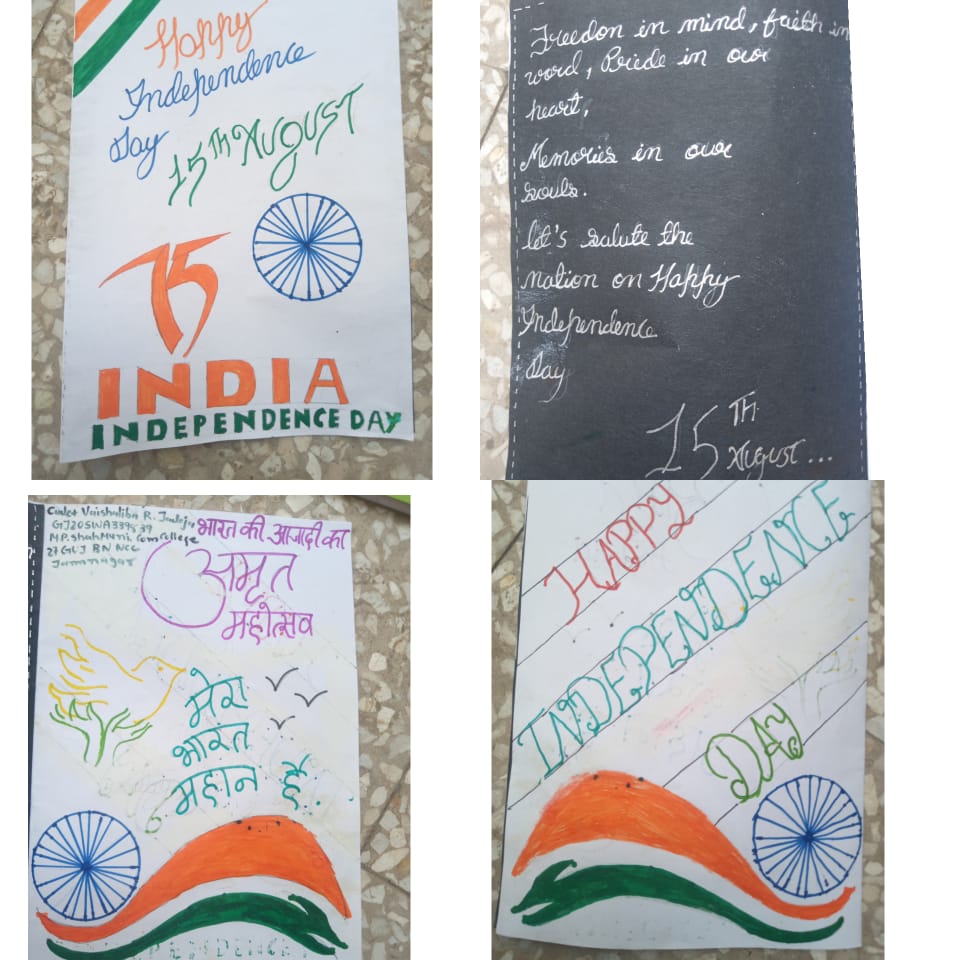 Happy
Independence
Day
15TH AUGUST
75
INDIA
INDEPENDENCE DAY
Freedon in mind, faith in
word, Priede in our
heart,
Memories in our
souls.
let's salute the
nation on Happy
Independence
Day
15TH
August...
Cadet Vaishaliba R. Jadeja
GJ20SWA339539
M.P. Shah Muni. Com College
27 GUJ BN NCC
Jamnagar
भारत की आजादी का
अमृत
महोत्सव
मेरा
भारत
महान है..
HAPPY
INDEPENDENCE
DAY